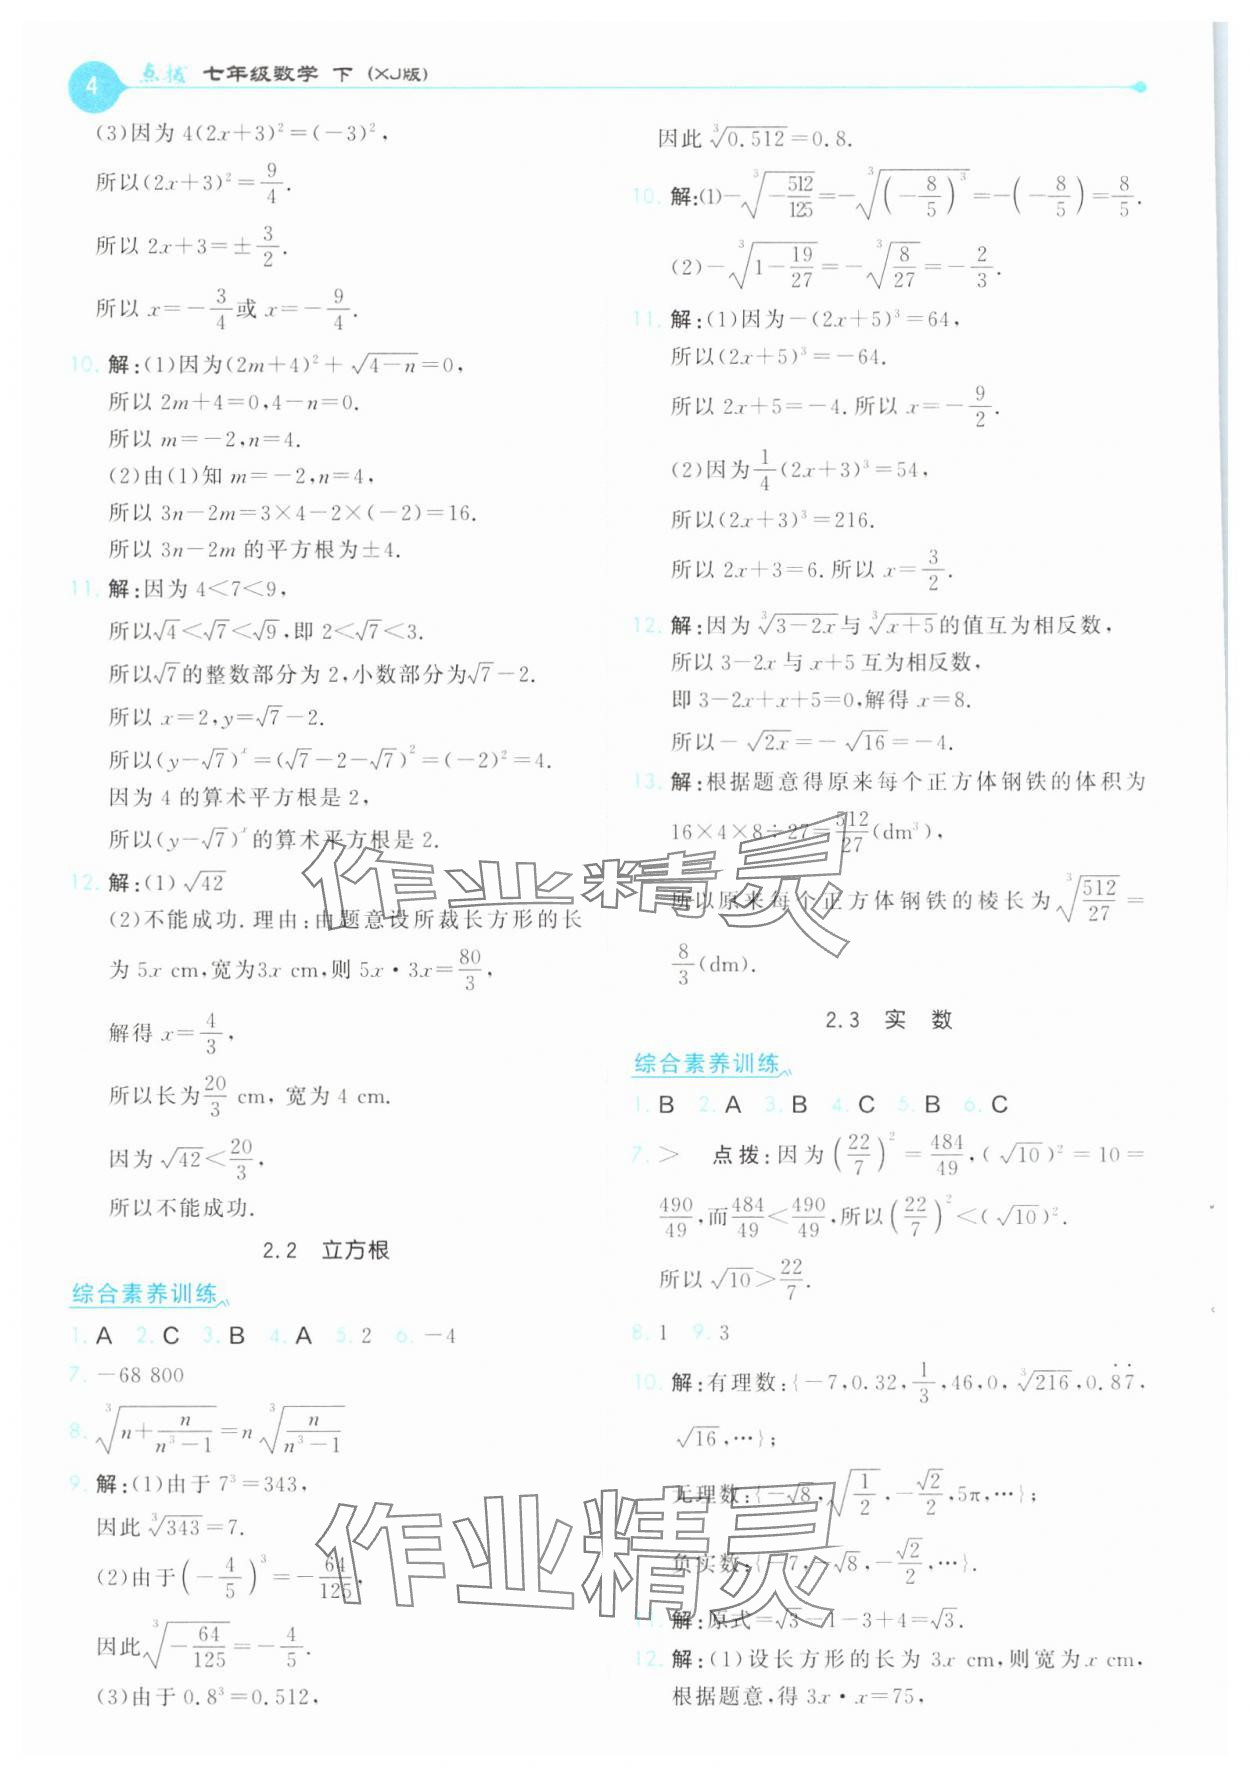 4 点拨 七年级数学 下 (XJ版)
(3)因为 4(2x+3)²=(-3)²,
所以(2x+3)²=9/4.
所以 2x+3=±3/2.
所以 x=-3/4或 x=-9/4.
10. 解:(1)因为(2m+4)²+√(4-n)=0,
所以 2m+4=0,4-n=0.
所以 m=-2,n=4.
(2)由(1)知 m=-2,n=4,
所以 3n-2m=3×4-2×(-2)=16.
所以 3n-2m 的平方根为±4.
11. 解:因为 4<7<9,
所以√4<√7<√9,即 2<√7<3.
所以√7的整数部分为 2,小数部分为√7-2.
所以 x=2,y=√7-2.
所以(y-√7)^x=(√7-2-√7)²=(-2)²=4.
因为 4 的算术平方根是 2,
所以(y-√7)^x的算术平方根是 2.
12. 解:(1)√42
(2)不能成功.理由:由题意设所裁长方形的长
为 5x cm,宽为3x cm,则 5x·3x=80/3,
解得 x=4/3,
所以长为20/3 cm, 宽为 4 cm.
因为√42<20/3,
所以不能成功.
2.2 立方根
综合素养训练
1. A 2. C 3. B 4. A 5. 2 6. -4
7. -68 800
8. ³√(n+n/(n³-1))=n ³√(n/(n³-1))
9. 解:(1)由于 7³=343,
因此³√343=7.
(2)由于(-4/5)³=-64/125,
因此³√(-64/125)=-4/5.
(3)由于 0.8³=0.512,
因此³√0.512=0.8.
10. 解:(1)-³√(-512/125)=-³√((-8/5)³)=-(-8/5)=8/5.
(2)-³√(1-19/27)=-³√(8/27)=-2/3.
11. 解:(1)因为-(2x+5)³=64,
所以(2x+5)³=-64.
所以 2x+5=-4.所以 x=-9/2.
(2)因为1/4(2x+3)³=54,
所以(2x+3)³=216.
所以 2x+3=6.所以 x=3/2.
12. 解:因为³√(3-2x)与³√(x+5)的值互为相反数,
所以 3-2x 与 x+5 互为相反数,
即 3-2x+x+5=0,解得 x=8.
所以-√(2x)=-√16=-4.
13. 解:根据题意得原来每个正方体钢铁的体积为
16×4×8÷27=512/27(dm³),
所以原来每个正方体钢铁的棱长为³√(512/27)=
8/3(dm).
2.3 实 数
综合素养训练
1. B 2. A 3. B 4. C 5. B 6. C
7. > 点拨:因为(22/7)²=484/49,(√10)²=10=
490/49,而484/49<490/49,所以(22/7)²<(√10)².
所以√10>22/7.
8. 1 9. 3
10. 解:有理数:{-7,0.32,1/3,46,0,³√216,0.8̇7̇,
√16,…};
无理数:{-√8,√(1/2),-√2/2,5π,…};
负实数:{-7,-√8,-√2/2,…}.
11. 解:原式=√3-1-3+4=√3.
12. 解:(1)设长方形的长为 3x cm,则宽为x cm,
根据题意,得 3x·x=75,
作业精灵
作业精灵